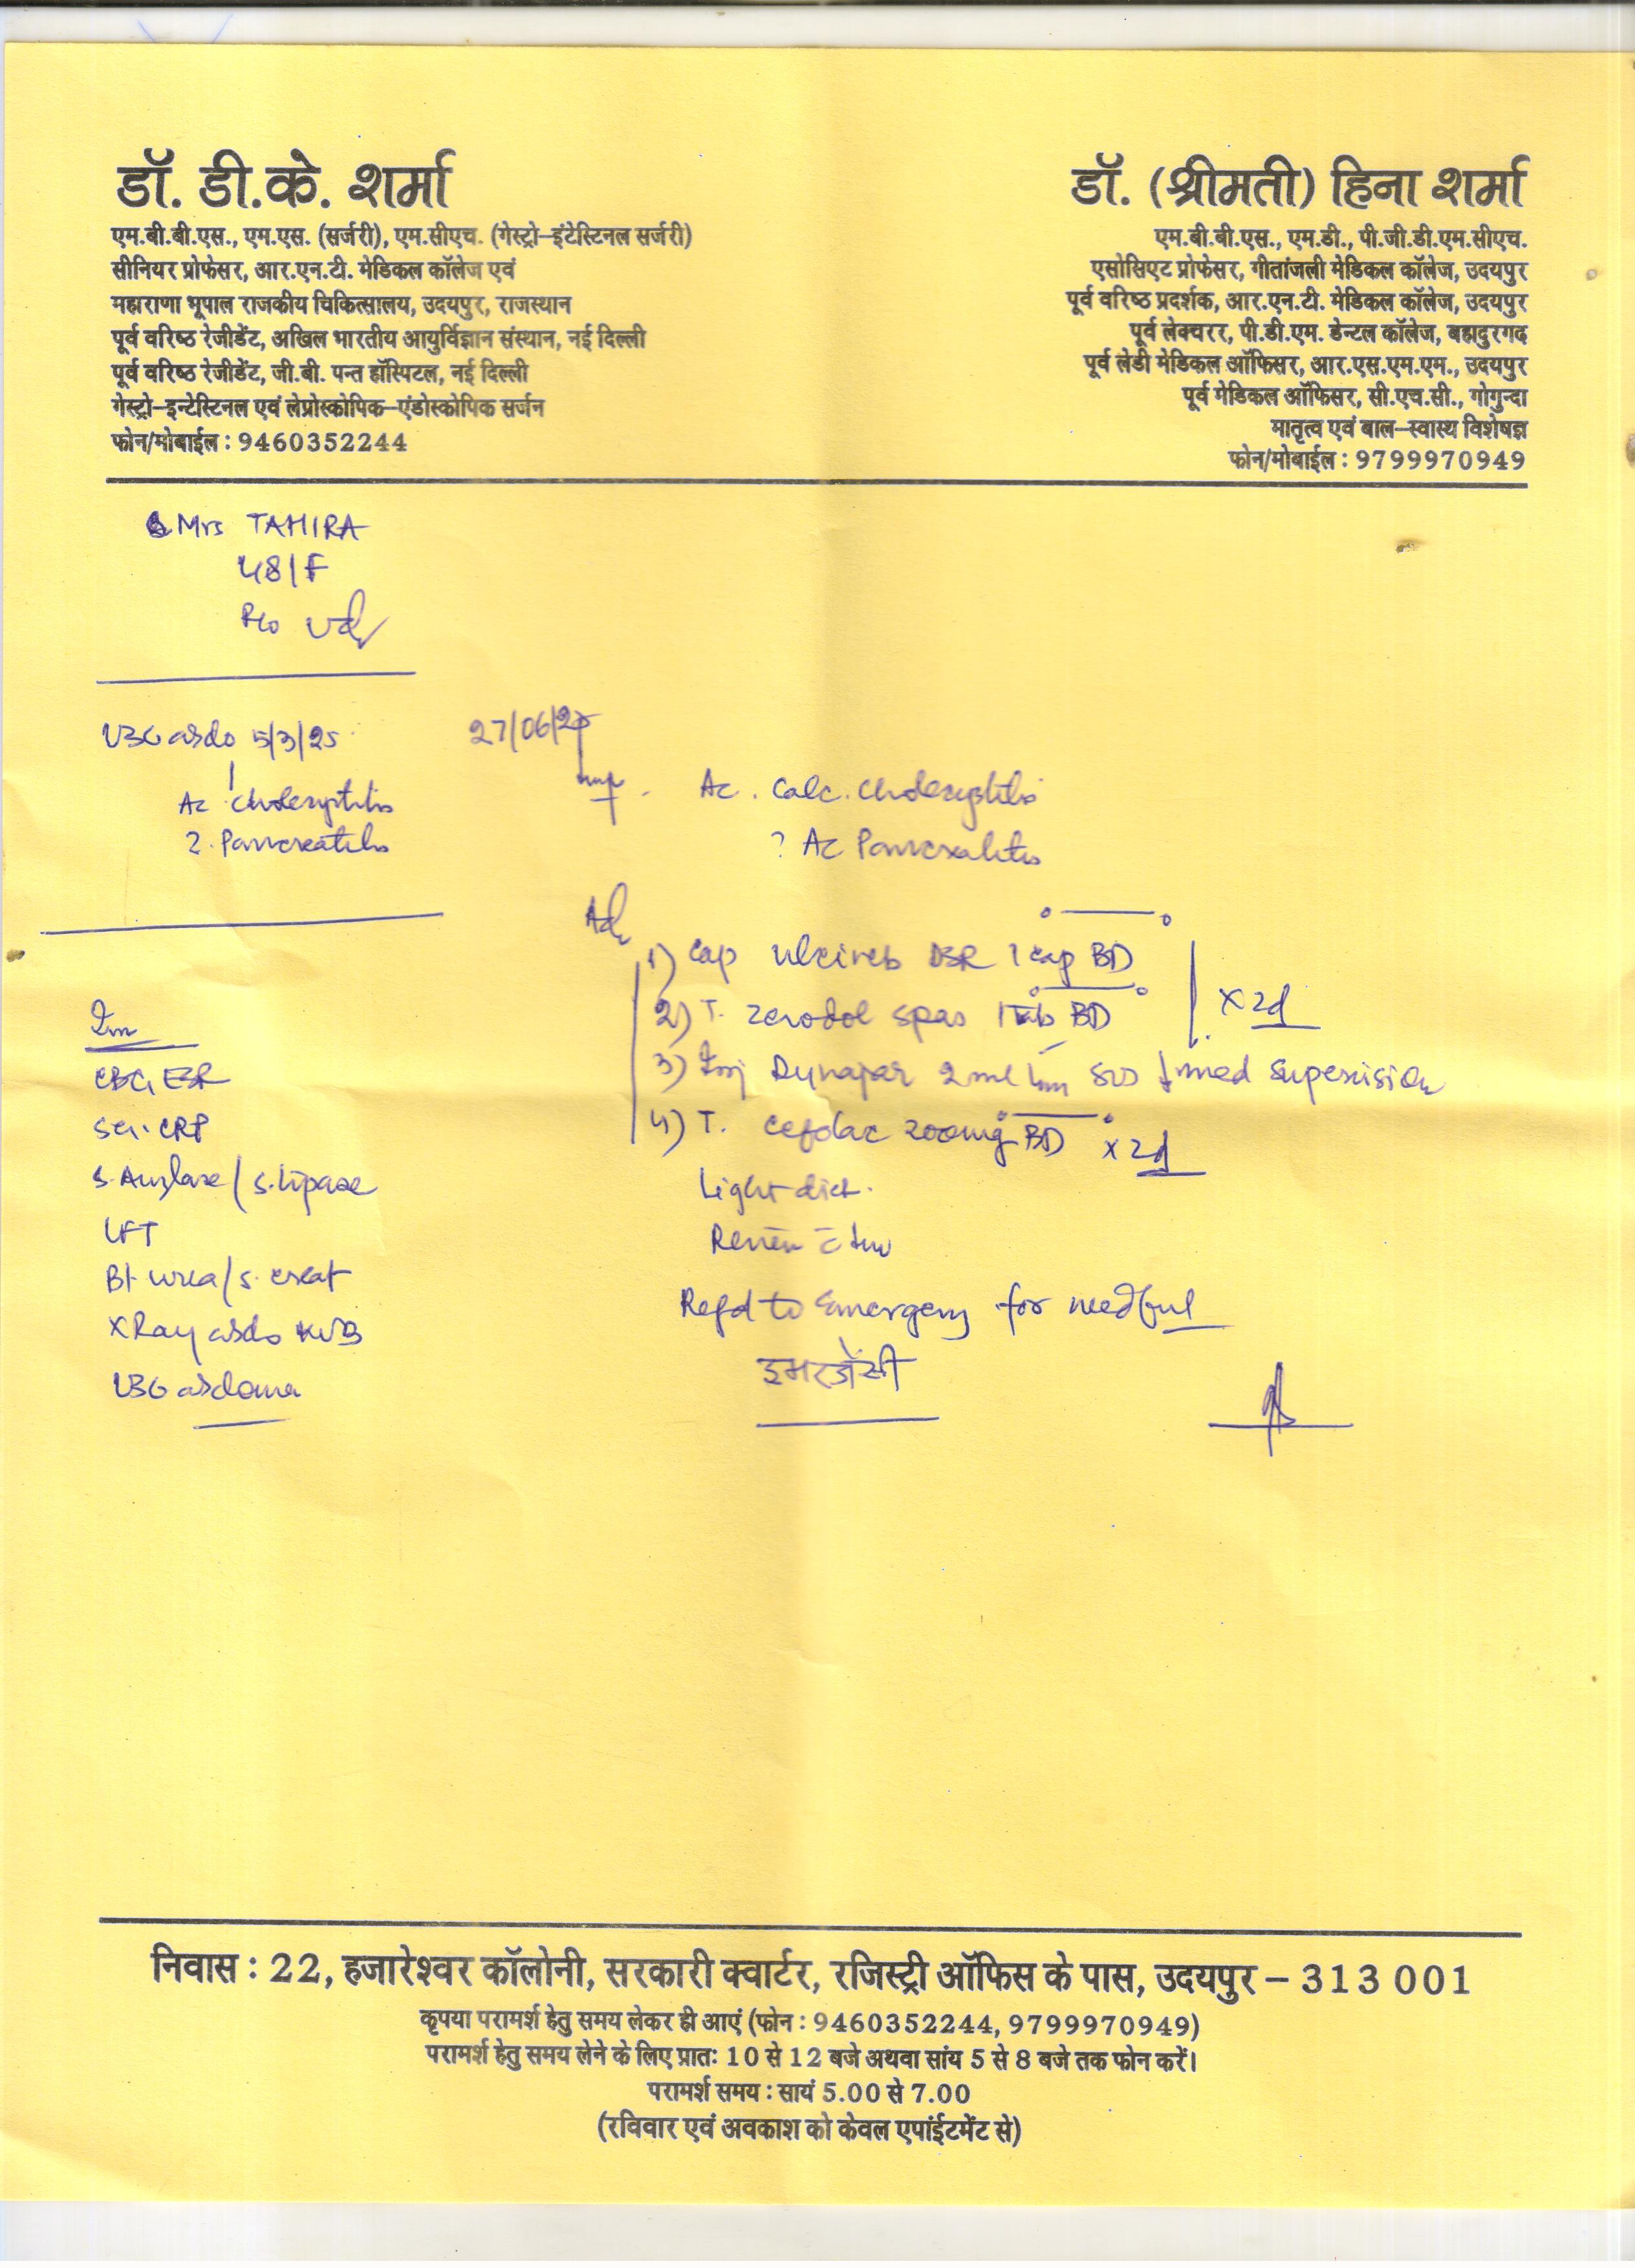 डॉ. डी.के. शर्मा
एम.बी.बी.एस., एम.एस. (सर्जरी), एम.सीएच. (गेस्ट्रो–इंटेस्टिनल सर्जरी)
सीनियर प्रोफेसर, आर.एन.टी. मेडिकल कॉलेज एवं
महाराणा भूपाल राजकीय चिकित्सालय, उदयपुर, राजस्थान
पूर्व वरिष्ठ रेजीडेंट, अखिल भारतीय आयुर्विज्ञान संस्थान, नई दिल्ली
पूर्व वरिष्ठ रेजीडेंट, जी.बी. पन्त हॉस्पिटल, नई दिल्ली
गेस्ट्रो–इन्टेस्टिनल एवं लेप्रोस्कोपिक–एंडोस्कोपिक सर्जन
फोन/मोबाईल : 9460352244
डॉ. (श्रीमती) हिना शर्मा
एम.बी.बी.एस., एम.डी., पी.जी.डी.एम.सीएच.
एसोसिएट प्रोफेसर, गीतांजली मेडिकल कॉलेज, उदयपुर
पूर्व वरिष्ठ प्रदर्शक, आर.एन.टी. मेडिकल कॉलेज, उदयपुर
पूर्व लेक्चरर, पी.डी.एम. डेन्टल कॉलेज, बहादुरगढ़
पूर्व लेडी मेडिकल ऑफिसर, आर.एस.एम.एम., उदयपुर
पूर्व मेडिकल ऑफिसर, सी.एच.सी., गोगुन्दा
मातृत्व एवं बाल–स्वास्थ विशेषज्ञ
फोन/मोबाईल : 9799970949
Mrs TAHIRA
48/F
R/o Ud
USG abdo 5/3/25
Ac Cholecystitis
? Pancreatitis
27/06/25
Imp - Ac. Calc. Cholecystitis
? Ac Pancreatitis
Adv
1) Cap DSR 1 cap BD
2) T. Zerodol spas 1 tab BD x 2d
3) Inj Dynapar 2ml Im SOS med supervision
4) T. 200mg BD x 2d
Light diet.
Review c Inv
Refd to Emergency for needful
इमरजेंसी
Inv
CBC, ESR
Se. CRP
S. Amylase / S. lipase
LFT
Bl. urea / S. creat
X Ray abdo KUB
USG abdomen
निवास : 22, हजारेश्वर कॉलोनी, सरकारी क्वार्टर, रजिस्ट्री ऑफिस के पास, उदयपुर – 313 001
कृपया परामर्श हेतु समय लेकर ही आएं (फोन : 9460352244, 9799970949)
परामर्श हेतु समय लेने के लिए प्रातः 10 से 12 बजे अथवा सांय 5 से 8 बजे तक फोन करें।
परामर्श समय : सायं 5.00 से 7.00
(रविवार एवं अवकाश को केवल एपांईटमेंट से)